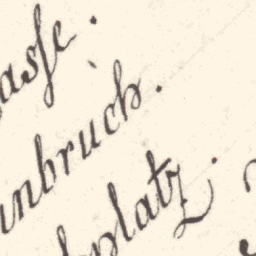 asse.
inbruch.
platz.